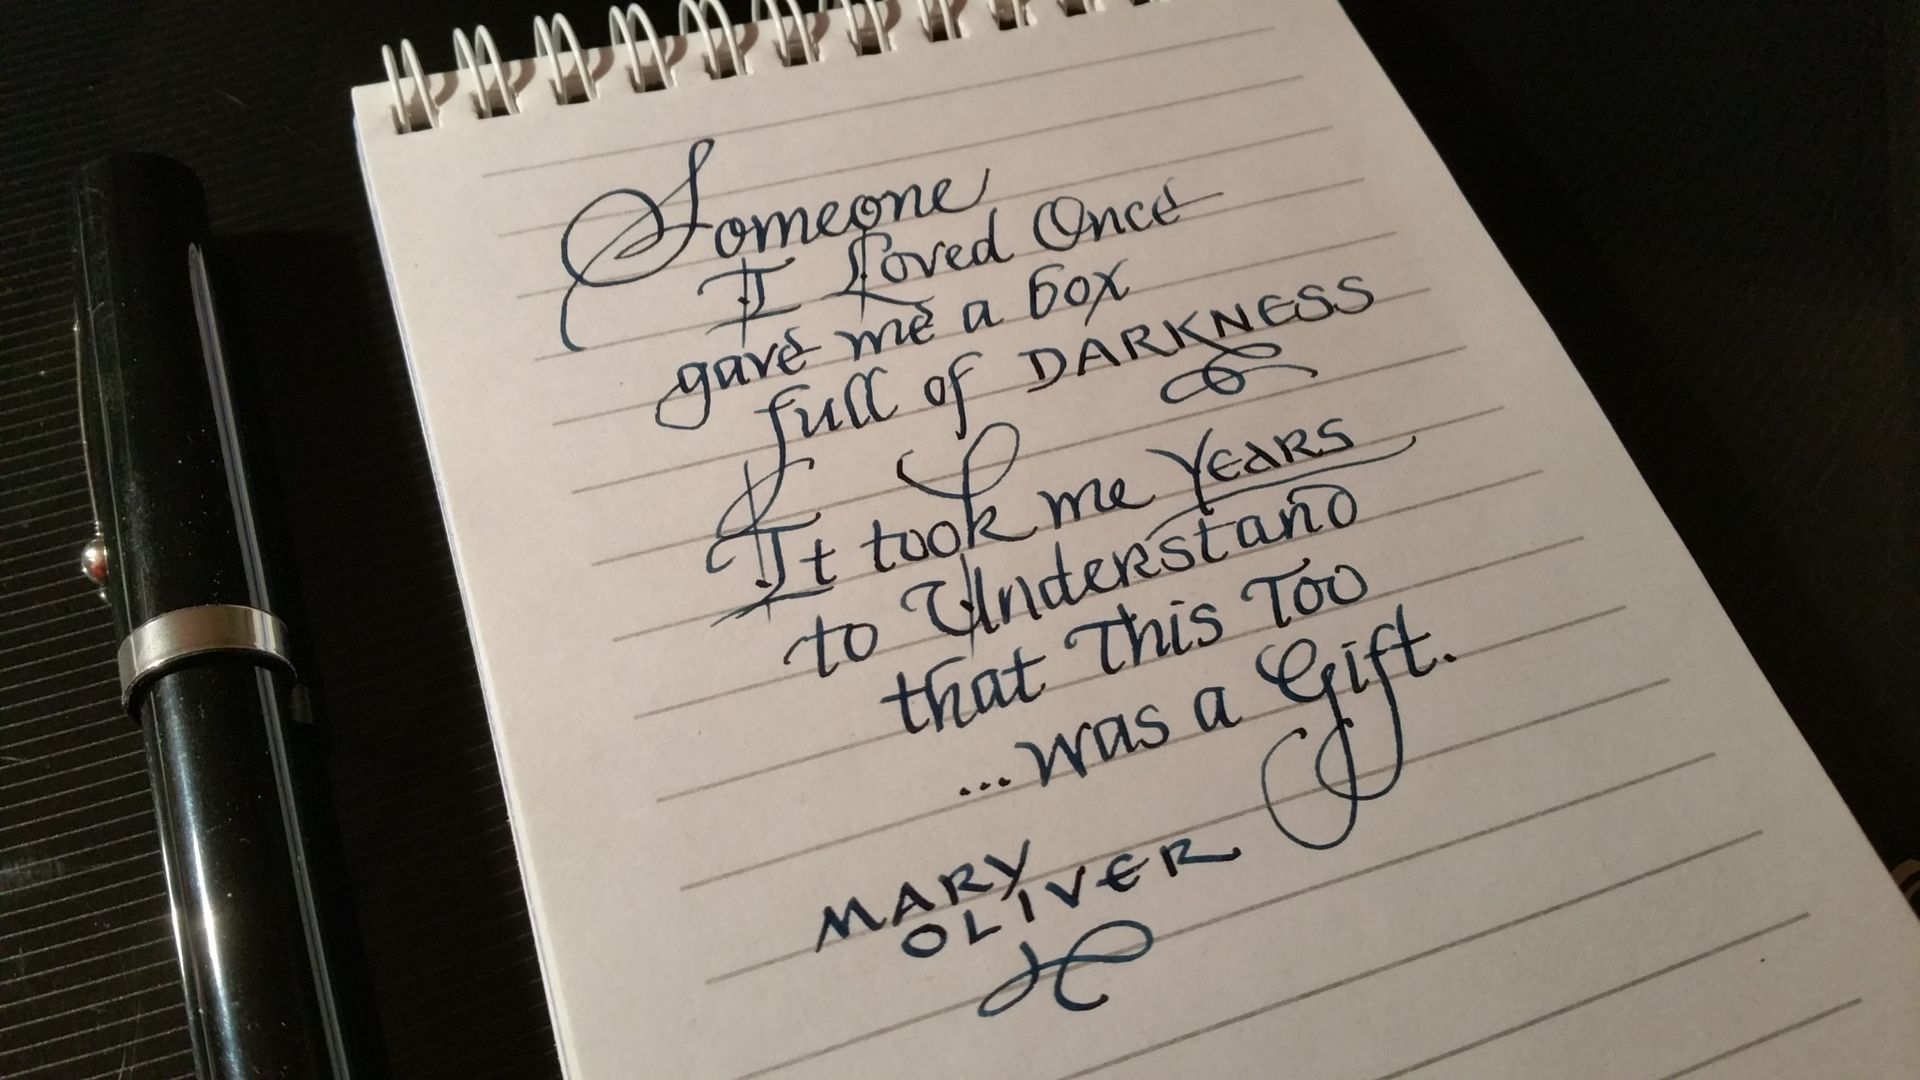 Someone
I Loved Once
gave me a box
full of DARKNESS
It took me YEARS
to Understand
that This Too
...was a Gift.
MARY
OLIVER